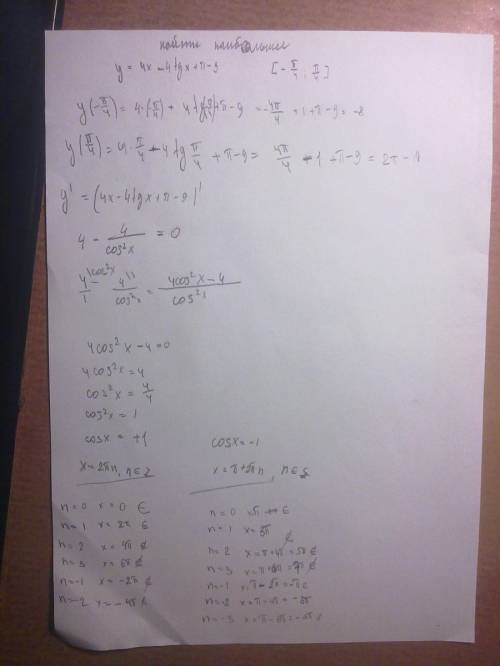 найти наибольшее
y = 4x - 4tgx + π - 9 [-π/4; π/4]
y(-π/4) = 4·(π/4) + 4tg(π/4) + π - 9 = -4π/4 + 1 + π - 9 = -8
y(π/4) = 4·π/4 - 4tg π/4 + π - 9 = 4π/4 - 1 + π - 9 = 2π -
y' = (4x - 4tgx + π - 9)'
4 - 4/cos²x = 0
4/1 \cos²x - 4/cos²x \1 = 4cos²x - 4/cos²x
4cos²x - 4 = 0
4cos²x = 4
cos²x = 4/4
cos²x = 1
cosx = +1 cosx = -1
x = 2πn, n∈z x = π + 2πn, n∈
n = 0 x = 0 ∈ n = 0 ∈
n = 1 x = 2π ∈ n = 1 x = 3π ∉
n = 2 x = 4π ∉ n = 2 x = π + 4π = 5π ∉
n = 3 x = 6π ∉ n = 3 ∉
n = -1 x = -2π ∉ n = -1 x = π - 2π = -π
n = -2 x = -4π ∉ n = -2 x = π - 4π = -3π
n = -3 x = π - 6π = -5π